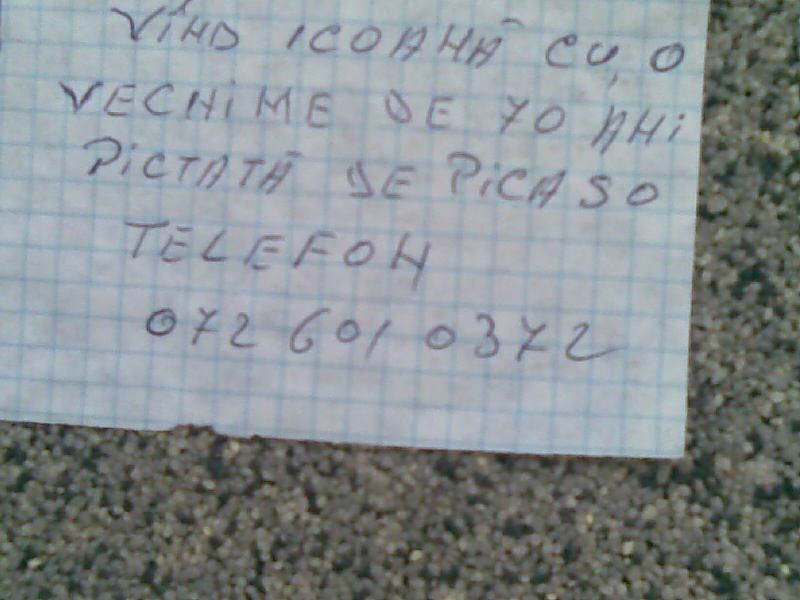 VÎND ICOANĂ CU O
VECHIME DE 70 ANI
PICTATĂ DE PICASO
TELEFON
072 601 0372